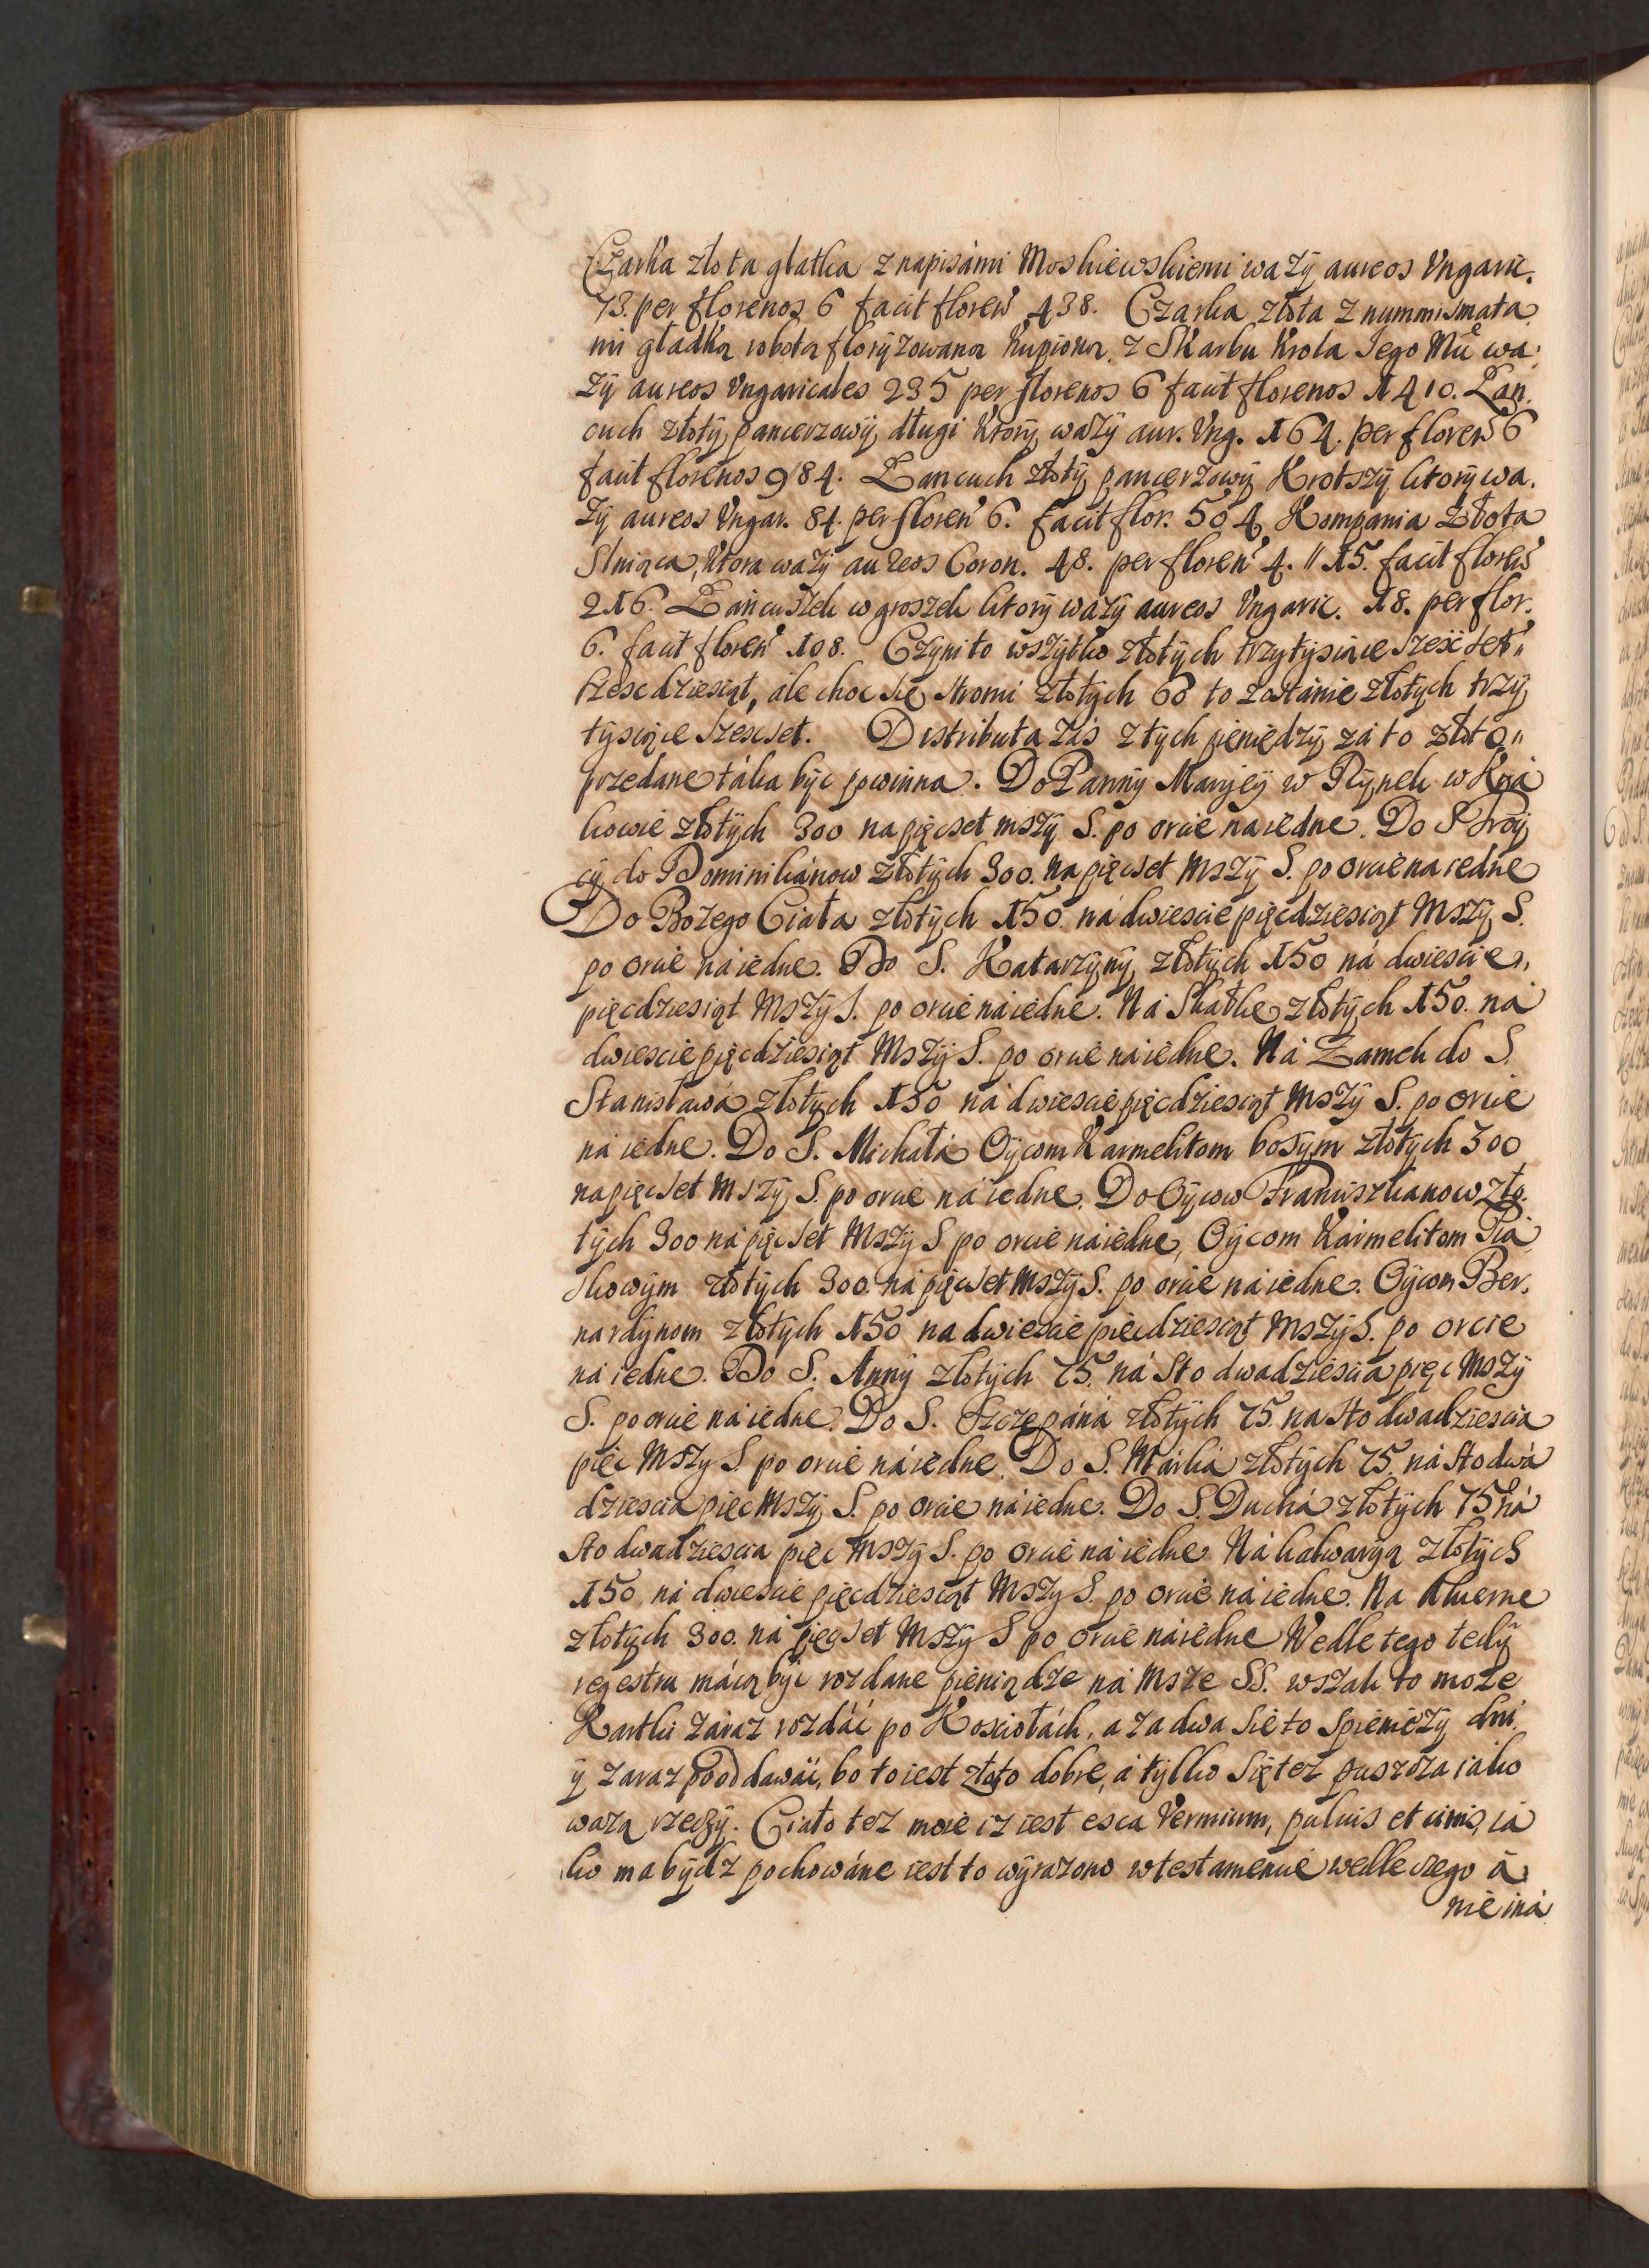 Czarka złota glatka z napisámi Moskiewskiemi waży aureos Vngaric.
73. per florenos 6 facit floreń 438. Czarka złota z nummismata
mi gładką robotą floryzowaną kupiona, z Skarbu Krola Jego Mci wa:
ży aureos Vngaricales 235 per florenos 6 facit florenos 1410. Łan,
cuch złoty, pancerzowy, długi ktory waży aur. Vng. 164. per floreń 6
facit florenos 984. Łancuch złoty pancerzowy Krotszy ktory wa,
ży aureos Vngar. 84. per floreń 6. facit flor. 504, Kompania złota
slniąca, ktora waży aureos Coron. 48. per floreń 4. // 15. facit floreń
216. Łáńcuszek w groszek ktory waży aureos Vngaric. 18. per flor.
6. facit floreń 108. Czyni to wszytko złotych trzy tysiące sześć set „
sześcdziesiąt, ále choc się stromi złotych 60 to zostánie złotych trzy
tysiące sześcset. Distributa zás z tych pieniędzy zá to złoto „
przedane táka być powinna. Do Panny Maryiey w Rynek w Krá
kowie złotych 300 na pięcset mszy S. po orcie na iedne. Do S Troy
cy do Dominikánow złotych 300. na pięcset Mszy S. po orcie na iedne
Do Bożego Ciała złotych 150. ná dwiescie pięcdziesiąt Mszy S.
po orcie ná iedne. Do S. Katarzyny złotych 150 ná dwiescie „
pięcdziesiąt Mszy S. po orcie ná iedne. Ná Skałke złotych 150. ná
dwiescie pięcdziesiąt Mszy S. po orcie ná iedne. Ná Zamek do S.
Stanisławá złotych 150 ná dwiescie pięcdziesiąt Mszy S. po orcie
ná iedne. Do S. Michałá Oycom Karmelitom bosym złotych 300
na pięcset Mszy S. po orcie ná iedne. Do Oycow Franciszkanow zło,
tych 300 ná pięcset Mszy S po orcie ná iedne, Oycom Karmelitom Piá
skowym złotych 300. ná pięcset Mszy S. po orcie ná iedne. Oycom Ber,
nardynom złotych 150 na dwiescie pięcdziesiąt Mszy S. po orcie
ná iedne. Do S. Anny złotych 75. ná sto dwadziescia pięc Mszy
S. po orcie ná iedne. Do S. Szczepáná złotych 75. na sto dwadziescia
pięc Mszy S. po orcie ná iedne. Do S. Marká złotych 75. ná sto dwá
dziescia pięc Mszy S. po orcie ná iedne. Do S. Duchá złotych 75 ná
sto dwadziescia pięc Mszy S. po orcie ná iedne Ná kalwaryą złotych
150. ná dwiescie pięcdziesiąt Mszy S. po orcie ná iedne. Na Alwerne
złotych 300. ná pięcset Mszy S po orcie ná iedne Wedle tego tedy
regestru máią być rozdane pieniądze ná Msze SS. wszak to może
Kartki záraz rozdáć po Kościołách, a za dwa sie to spienięży dni
y zaraz pooddawáć, bo to iest złoto dobre, á tylko się też puszcza iáko
ważą rzeczy. Ciało też moie iż iest esca Vermium, puluis et cinis, iá
ko ma bydz pochowáne iest to wyrażono w testamencie wedle czego á
nie iná